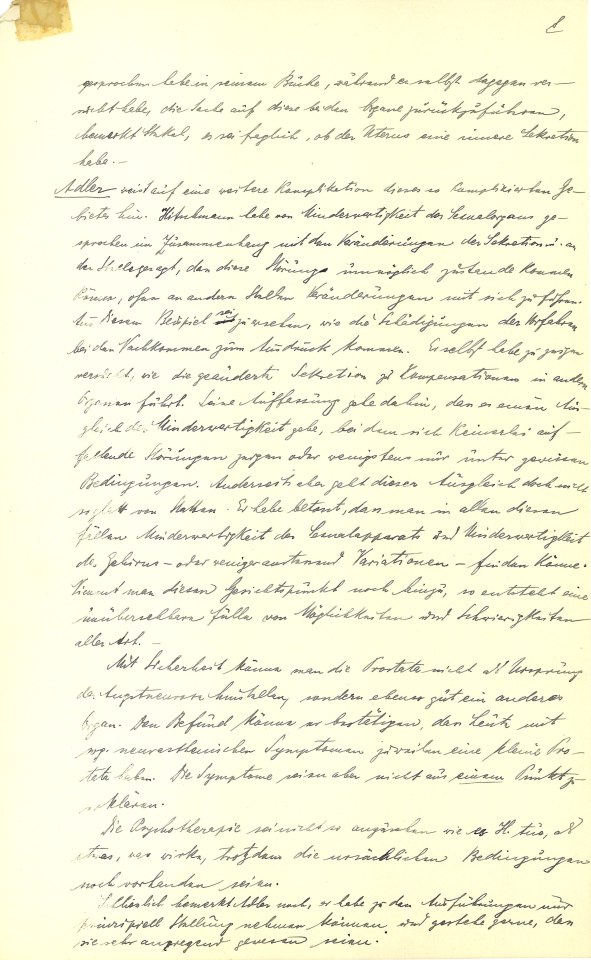 8
gesprochen habe in seinem Buche, während er selbst dagegen ver-
sucht habe, die Sache auf diese beiden Organe zurückzuführen,
bemerkt Stekel, es sei fraglich, ob der Uterus eine innere Sekretion
habe. -
Adler weist auf eine weitere Komplikation dieses so komplizierten Ge-
bietes hin. Hitschmann habe von Minderwertigkeit des Sexualorgans ge-
sprochen im Zusammenhang mit den Veränderungen der Sekretion u. an
der Stelle gesagt, dass diese Störung unmöglich zustande kommen
könne, ohne an andern Stellen Veränderungen mit sich zu führen.
Aus diesem Beispiel sei zu ersehen, wie die Schädigungen der Vorfahren
bei den Nachkommen zum Ausdruck kommen. Er selbst habe zu zeigen
versucht, wie die geänderte Sekretion zu Kompensationen in andern
Organen führt. Seine Auffassung gehe dahin, dass es einen Aus-
gleich der Minderwertigkeit gebe, bei dem sich keinerlei auf-
fallende Störungen zeigen oder wenigstens nur unter gewissen
Bedingungen. Anderseits aber geht dieser Ausgleich doch nicht
so glatt von Statten. Er habe betont, dass man in allen diesen
Fällen Minderwertigkeit des Sexualapparats und Minderwertigkeit
des Gehirns - oder weniger austernd Variationen - finden könne.
Nimmt man diesen Gesichtspunkt noch hinzu, so entsteht eine
unübersehbare Fülle von Möglichkeiten und Schwierigkeiten
aller Art. -
Mit Sicherheit könne man die Prostata nicht als Ursprung
der Angstneurose hinstellen, sondern ebenso gut ein anderes
Organ. Den Befund könne er bestätigen, dass Leute mit
sog. neurasthenischen Symptomen zuweilen eine kleine Pro-
stata haben. Die Symptome seien aber nicht aus einem Punkt zu
erklären.
Die Psychotherapie sei nicht so anzusehen wie es H. tue, als
etwas, was wirke, trotzdem die ursächlichen Bedingungen
noch vorhanden seien.
Schliesslich bemerkt Adler noch, er habe zu den Ausführungen nur
prinzipiell Stellung nehmen können, und gestehe gerne, dass
sie sehr anregend gewesen seien.